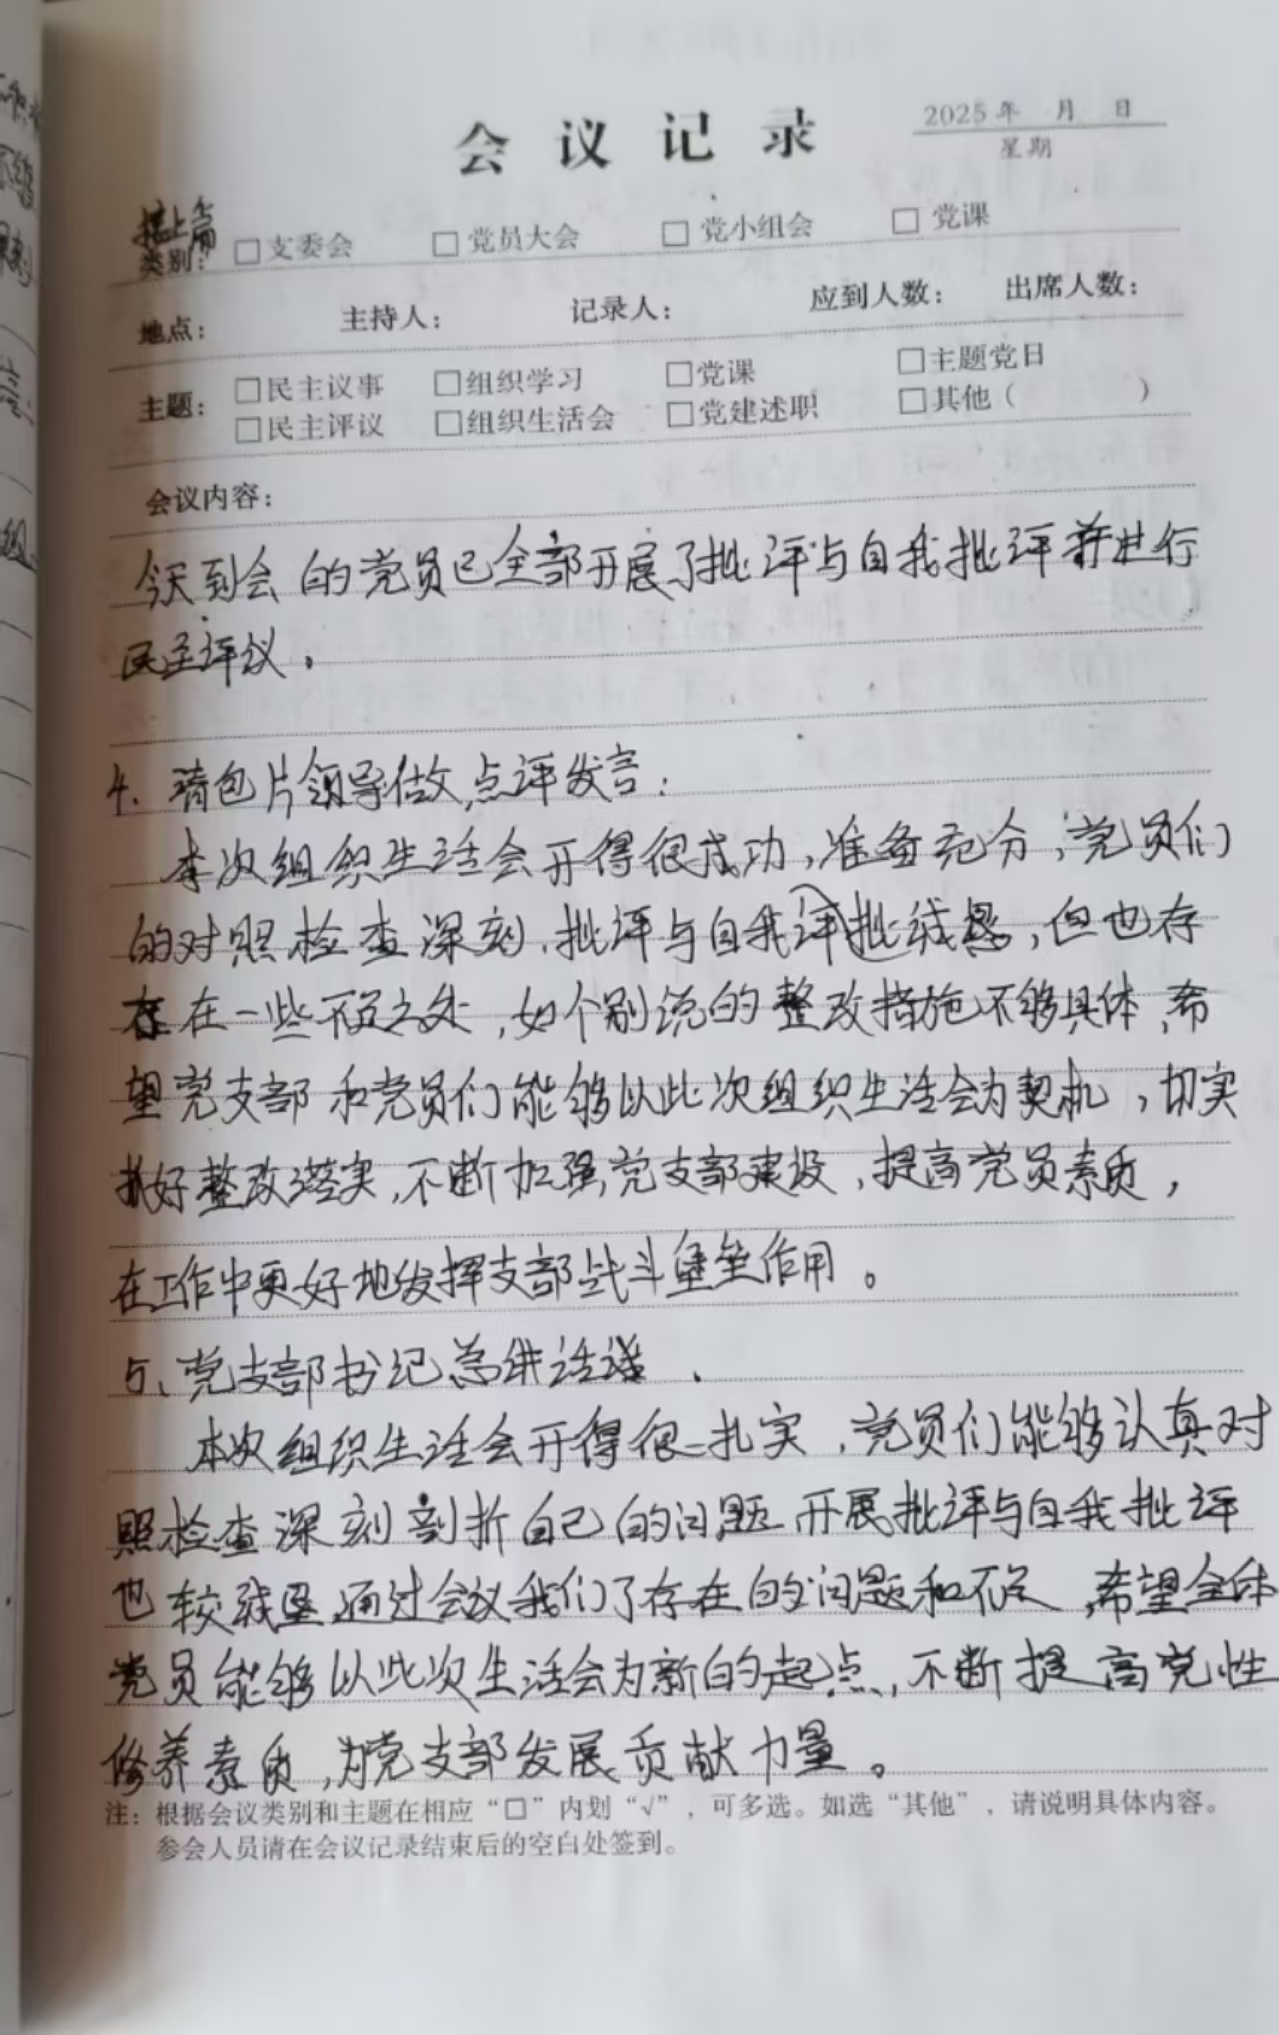 会议记录
2025年 月 日
星期
接上篇
类别： □支委会 □党员大会 □党小组会 □党课
地点： 主持人： 记录人： 应到人数： 出席人数：
主题： □民主议事 □组织学习 □党课 □主题党日
□民主评议 □组织生活会 □党建述职 □其他（ ）
会议内容：
今天到会的党员已全部开展了批评与自我批评并进行
民主评议。
4、请包片领导做点评发言：
本次组织生活会开得很成功，准备充分，党员们
的对照检查深刻，批评与自我评批诚恳，但也存
在一些不足之处，如个别说的整改措施不够具体，希
望党支部和党员们能够以此次组织生活会为契机，切实
抓好整改落实，不断加强党支部建设，提高党员素质，
在工作中更好地发挥支部战斗堡垒作用。
5、党支部书记总讲话
本次组织生活会开得很扎实，党员们能够认真对
照检查深刻剖折自己的问题 开展批评与自我批评
也较诚恳，通过会议我们了存在的问题和不足，希望全体
党员能够以此次生活会为新的起点，不断提高党性
修养素质，为党支部发展贡献力量。
注：根据会议类别和主题在相应“□”内划“√”，可多选。如选“其他”，请说明具体内容。
参会人员请在会议记录结束后的空白处签到。